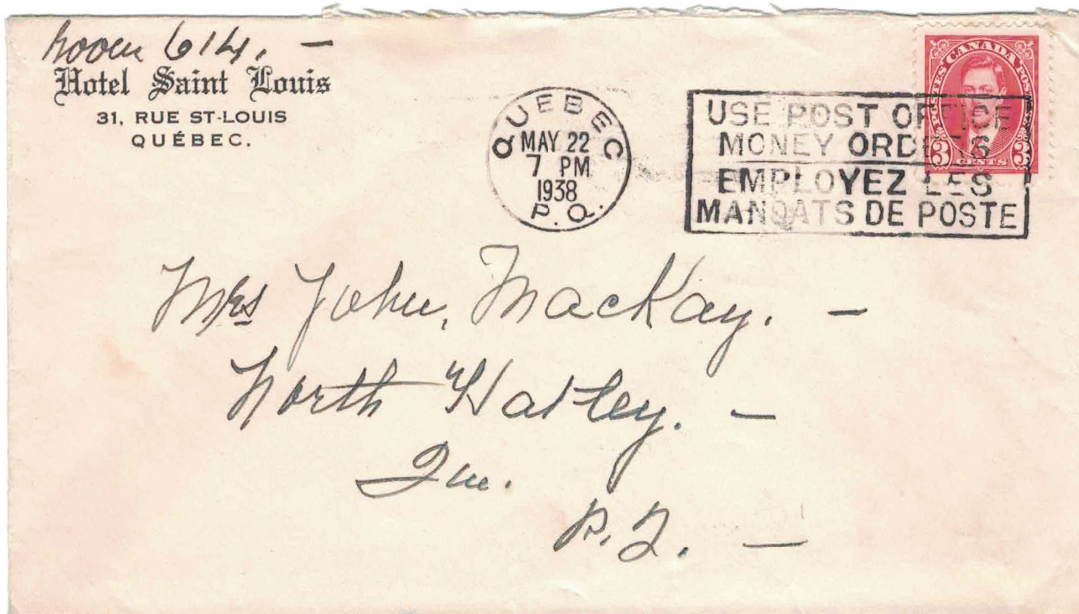 Room 614. —
Hotel Saint Louis
31, RUE ST-LOUIS
QUÉBEC.
QUEBEC
MAY 22
7 PM
1938
P.Q.
USE POST OFFICE
MONEY ORDERS
EMPLOYEZ LES
MANDATS DE POSTE
POSTES CANADA POSTAGE
3 CENTS 3
Mrs John, MacKay. —
North Hatley. —
Que.
P.Q. —